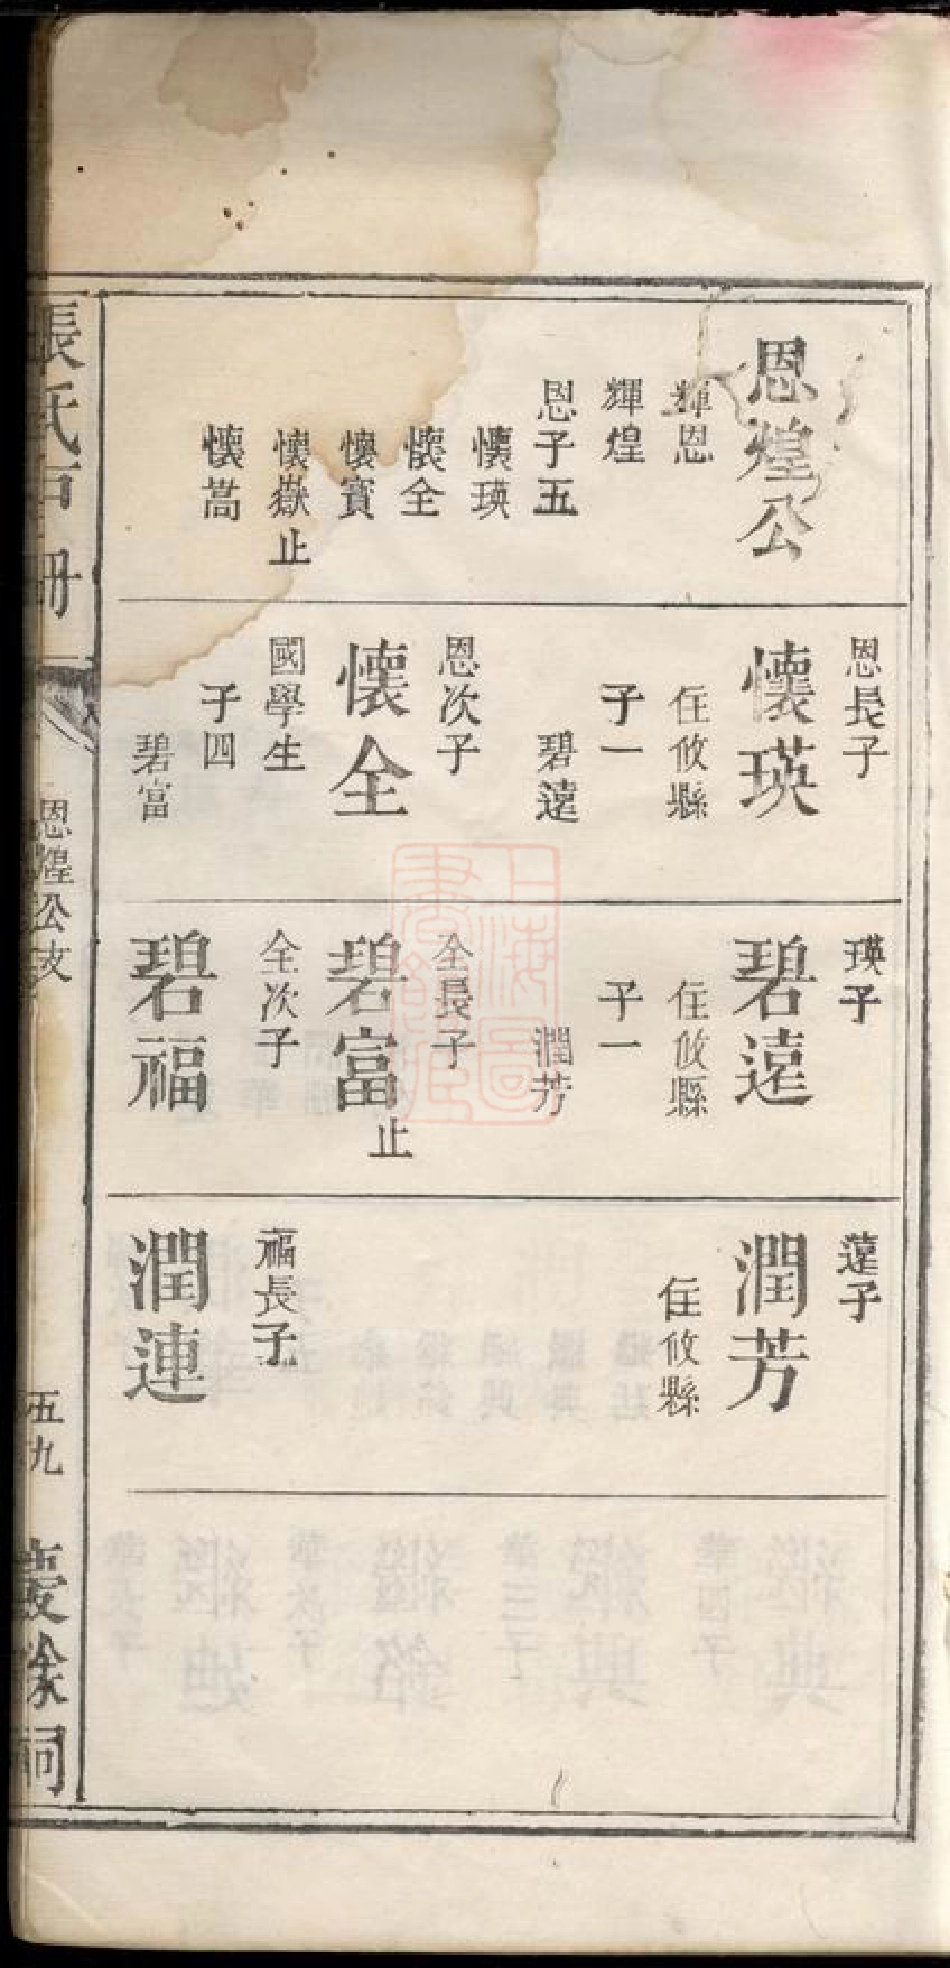 恩煌公
輝恩
輝煌
恩子五
懷瑛
懷全
懷寶
懷嶽止
懷嵩
恩長子
懷瑛
住攸縣
子一
碧遠
恩次子
懷全
國學生
子四
碧富
瑛子
碧遠
住攸縣
子一
潤芳
全長子
碧富止
全次子
碧福
遠子
潤芳
住攸縣
福長子
潤連
張氏 冊一
恩煌公支
五九
餘祠
上海圖
書館藏